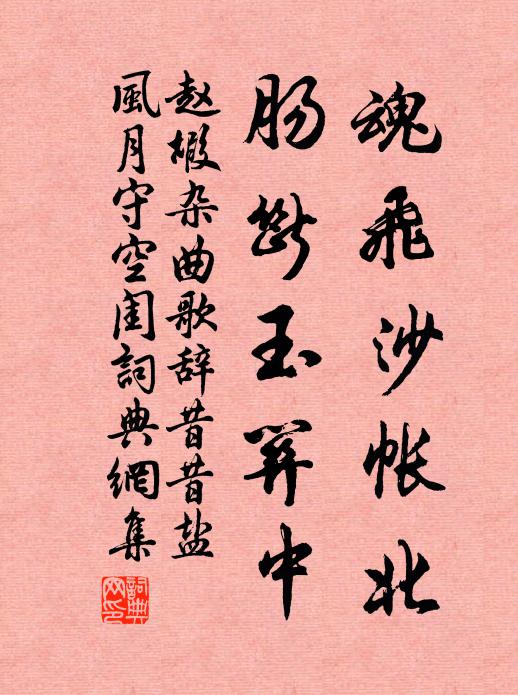 魂飛沙帐北
肠斷玉關中
赵嘏杂曲歌辞昔昔盐
風月守空閨詞典網集
詞典网印